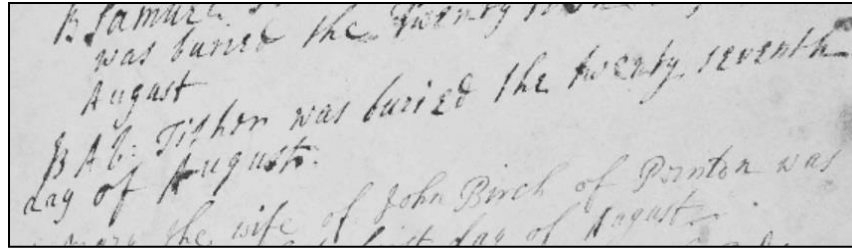 B Samuel
was buried the Twenty
August
B Ab: Tipher was buried the twenty seventh
day of August.
mary the wife of John Birch of Pointon was
first day of August